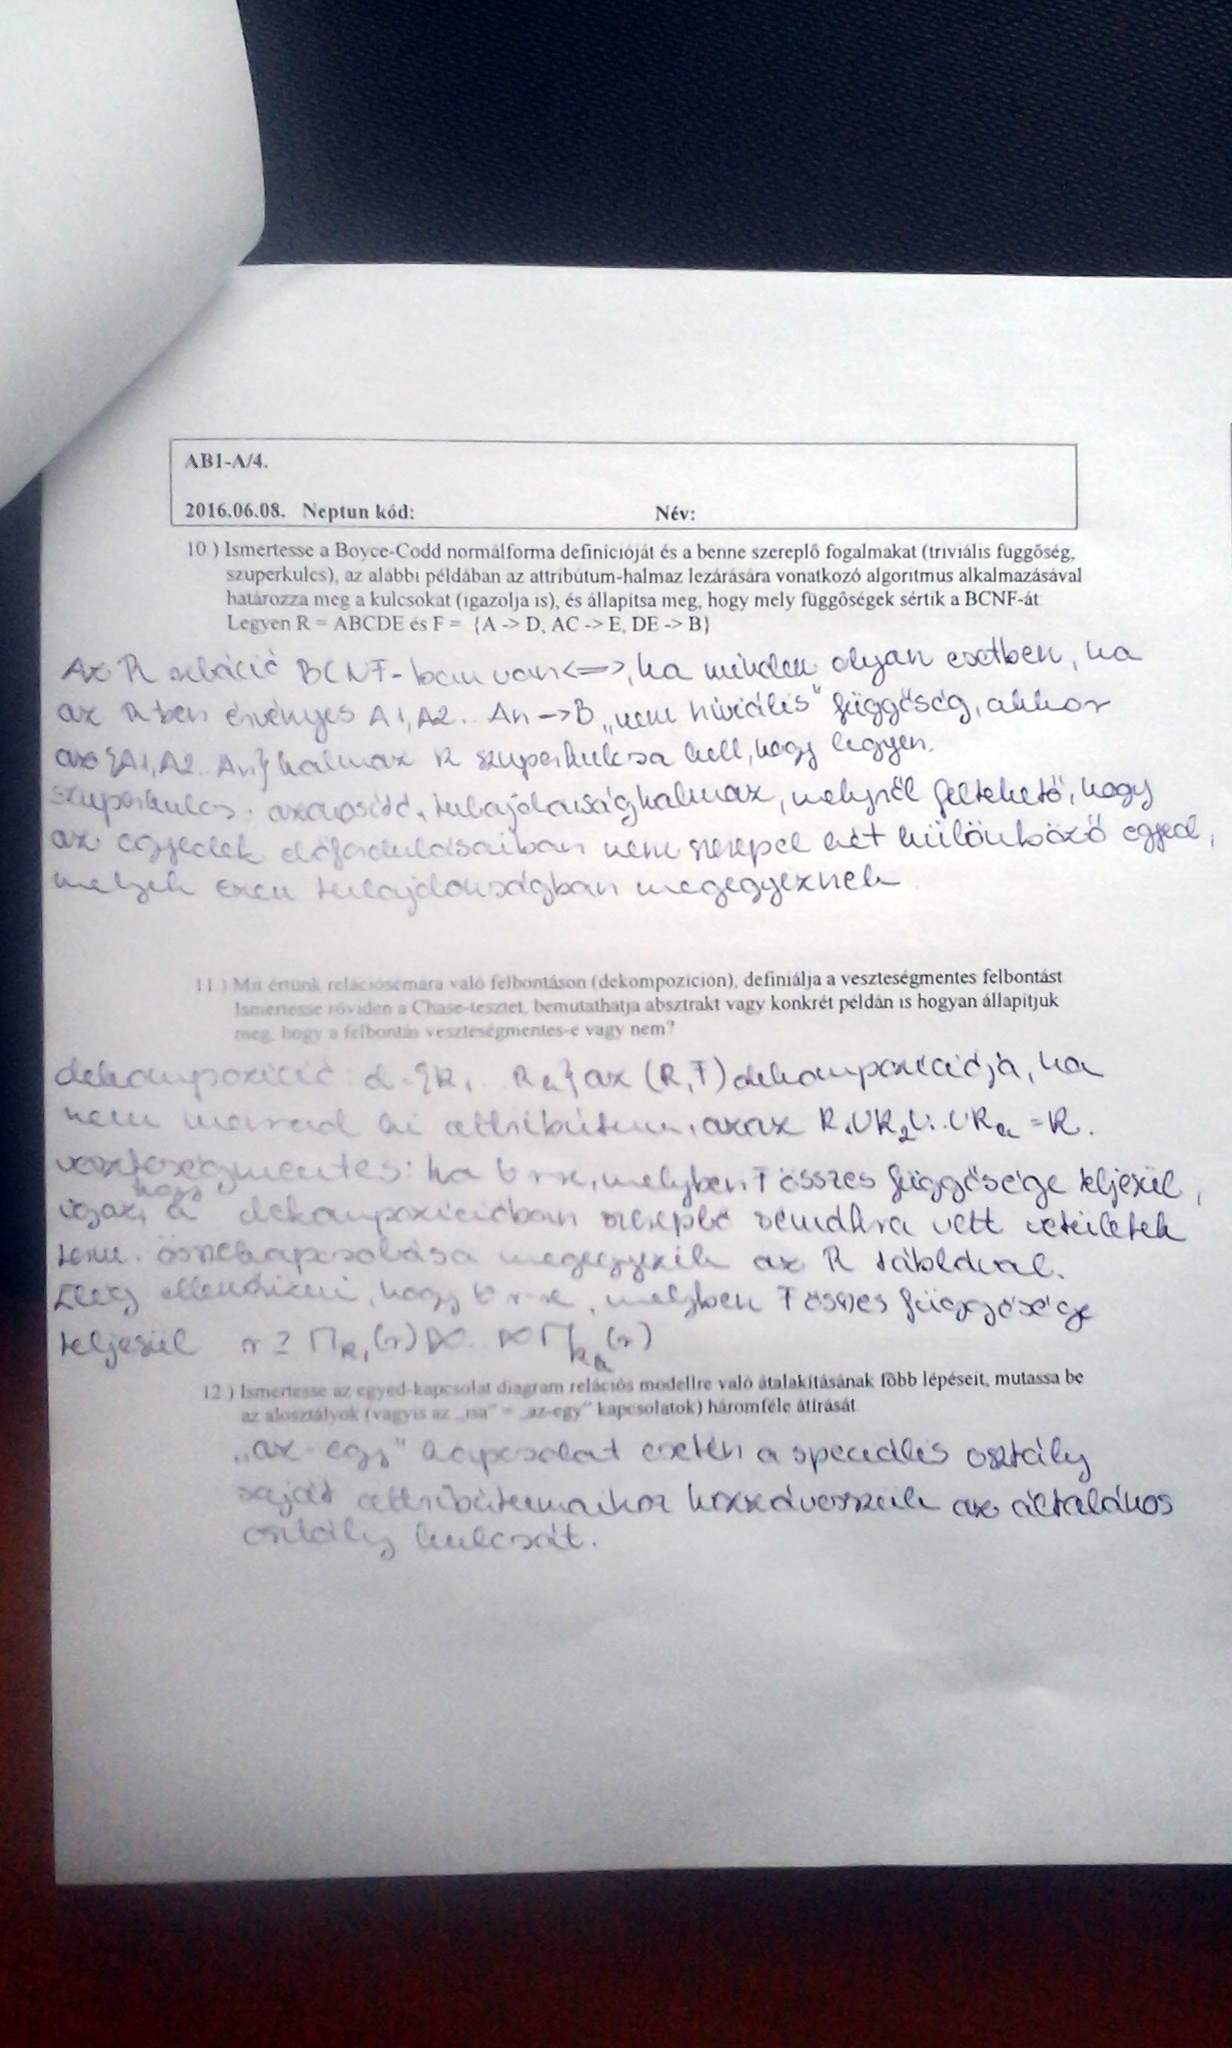 AB1-A/4.
2016.06.08. Neptun kód: Név:
10.) Ismertesse a Boyce-Codd normálforma definícióját és a benne szereplő fogalmakat (triviális függőség,
szuperkulcs), az alábbi példában az attribútum-halmaz lezárására vonatkozó algoritmus alkalmazásával
határozza meg a kulcsokat (igazolja is), és állapítsa meg, hogy mely függőségek sértik a BCNF-át
Legyen R = ABCDE és F = {A -> D, AC -> E, DE -> B}
Az R reláció BCNF-ban van <=>, ha minden olyan esetben, ha
az R ben érvényes A1, A2.. An -> B „nem triviális" függőség, akkor
az {A1, A2.. An} halmaz R szuperkulcsa kell, hogy legyen.
szuperkulcs: azonosító, tulajdonsághalmaz, melyről feltehető, hogy
az egyedek előfordulásaiban nem szerepel két különböző egyed,
melyek ezen tulajdonságban megegyeznek
11.) Mit értünk relációsémára való felbontáson (dekompozíción), definiálja a veszteségmentes felbontást
Ismertesse röviden a Chase-tesztet, bemutathatja absztrakt vagy konkrét példán is hogyan állapítjuk
meg, hogy a felbontás veszteségmentes-e vagy nem?
dekompozíció: d={R1.. Rn} az (R,F) dekompozíciója, ha
nem marad ki attribútum, azaz R1UR2U..URn = R.
veszteségmentes: ha ∀ r-re, melyben F összes függősége teljesül,
igaz, hogy a dekompozícióban szereplő sémákra vett vetületek
term. összekapcsolása megegyezik az R táblával.
Elég ellenőrizni, hogy ∀ r-re, melyben F összes függősége
teljesül r ⊇ Π R1 (r) ⋈ .. ⋈ Π Rn (r)
12.) Ismertesse az egyed-kapcsolat diagram relációs modellre való átalakításának főbb lépéseit, mutassa be
az alosztályok (vagyis az „isa" = „az-egy" kapcsolatok) háromféle átírását
„az egy" kapcsolat esetén a speciális osztály
saját attribútumaihoz hozzávesszük az általános
osztály kulcsát.